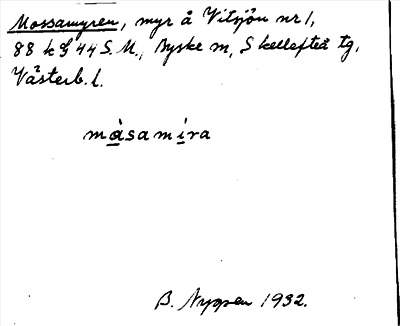 Mossamyren, myr å Vitsjön nr 1,
88 k J 44 S. M., Byske m, Skellefteå tg,
Västerb. l.
mɑ̀samíra
B. Nygren 1932.